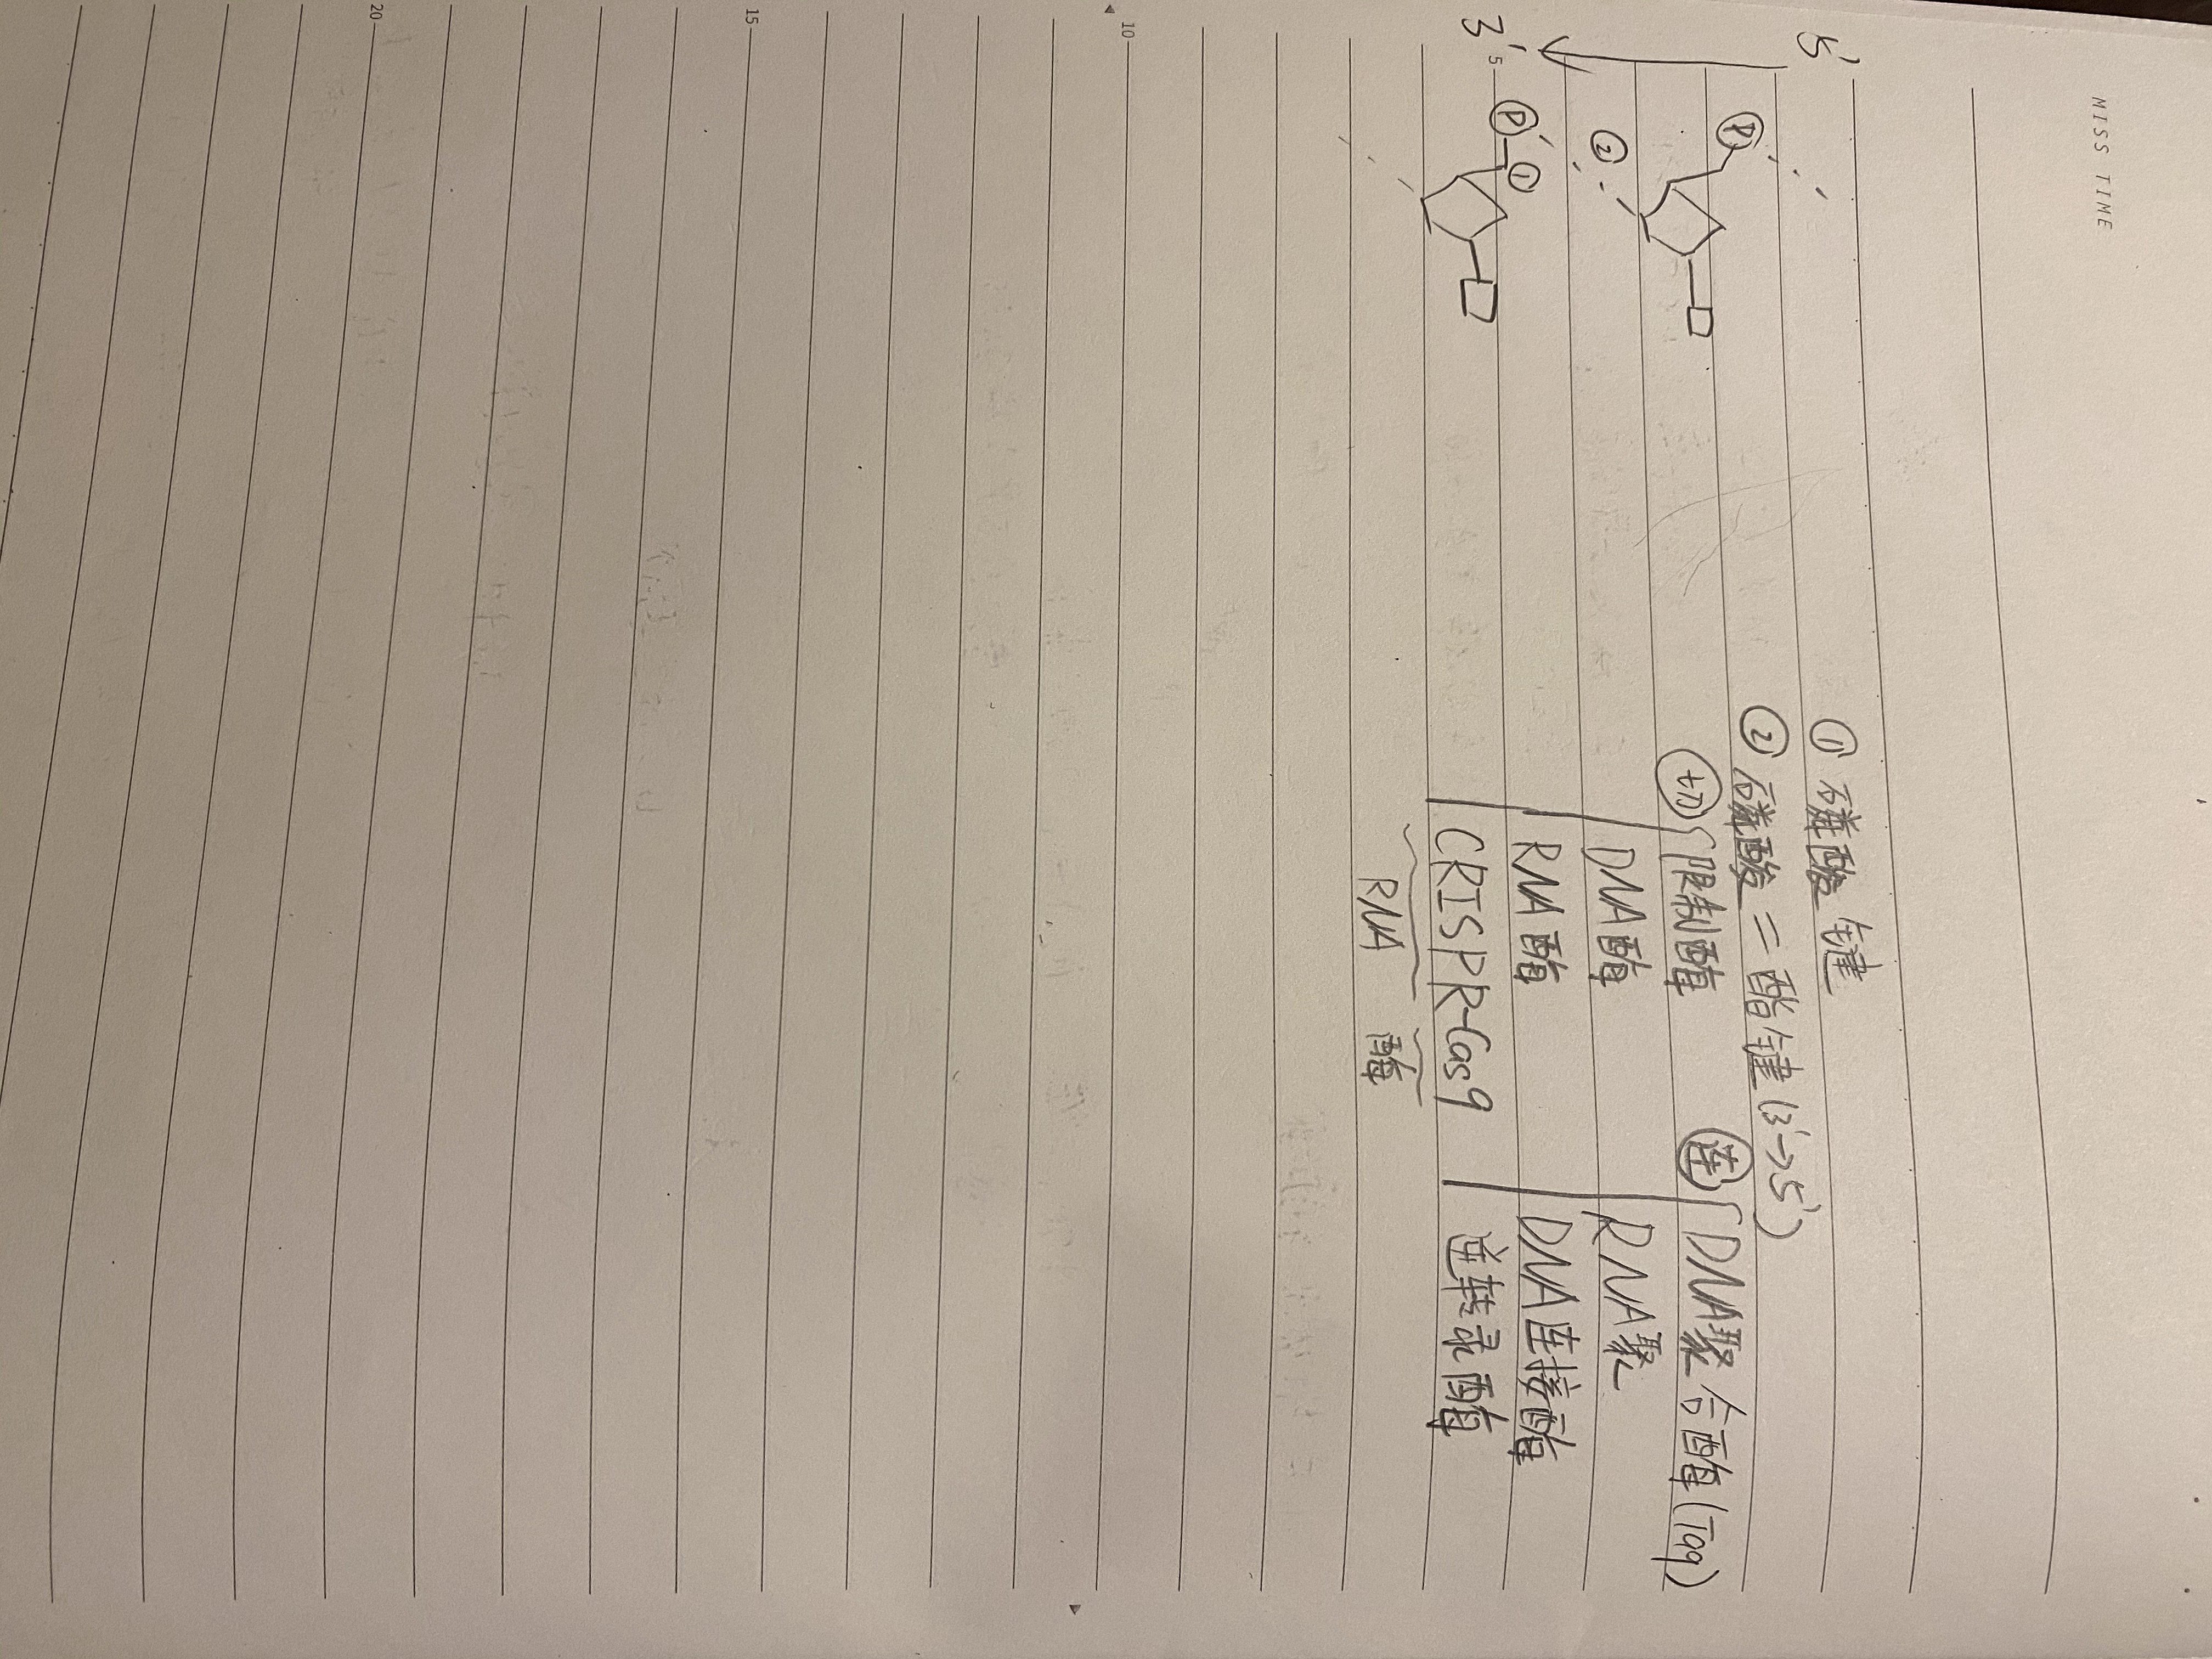 MISS TIME
① 磷酸键
② 磷酸=酯键(3'→5')
5'
P
切 限制酶
DNA酶
RNA酶
CRISPR-Cas9
RNA 酶
连 DNA聚合酶(Taq)
RNA聚
DNA连接酶
逆转录酶
②
P ①
3'
5
10
15
20